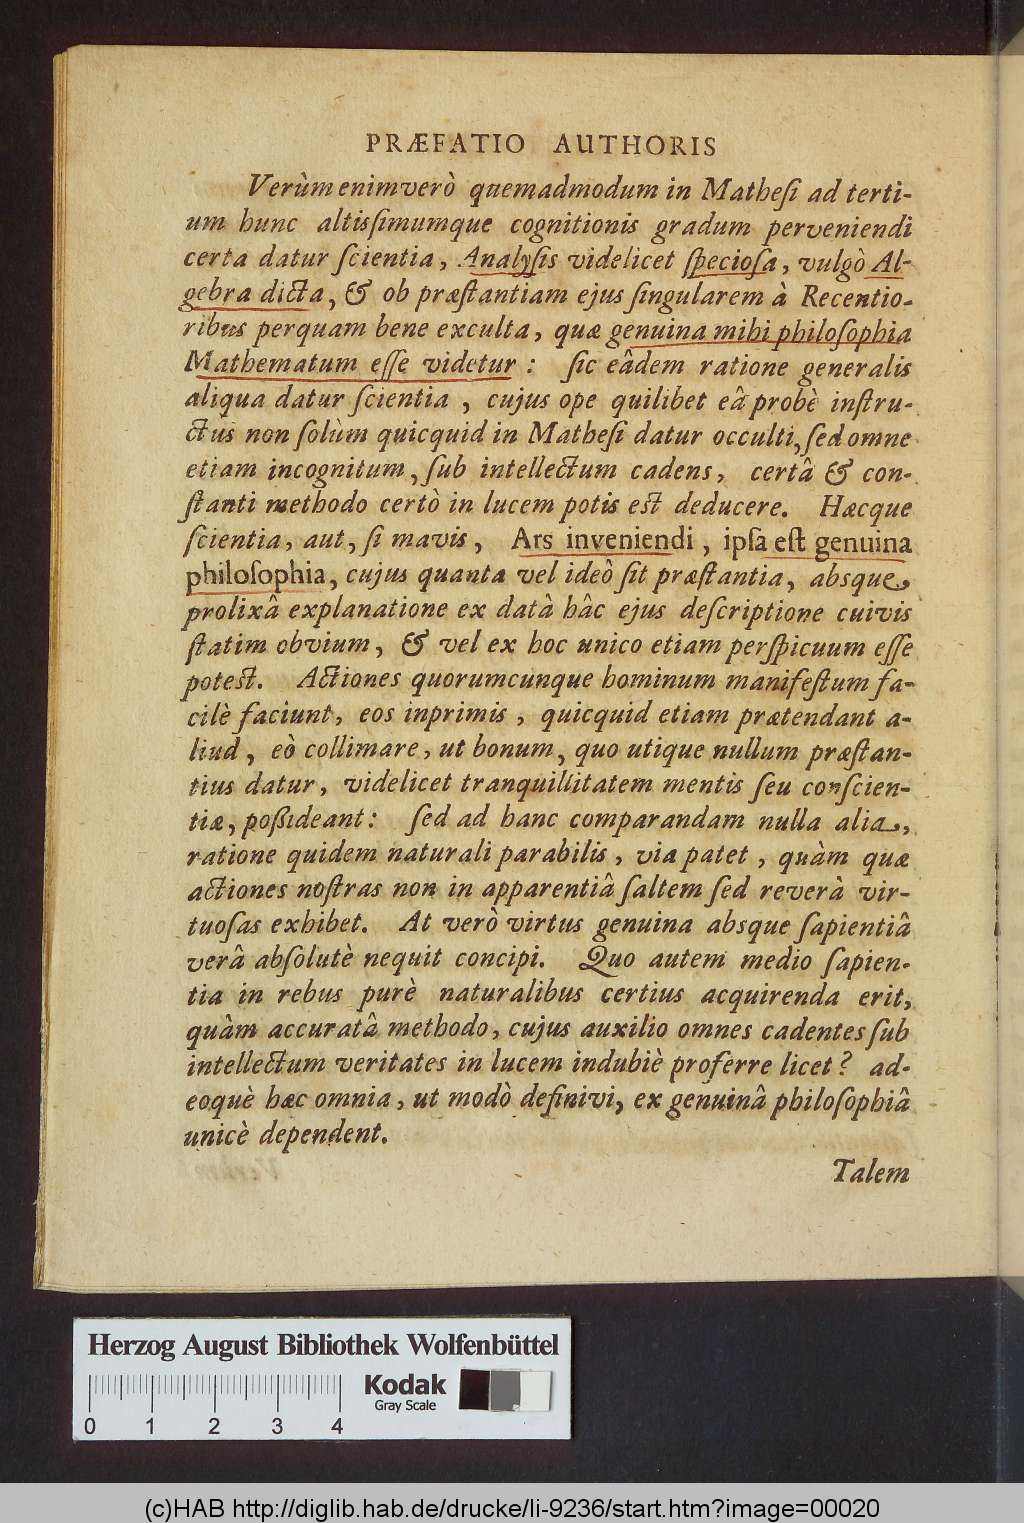 PRÆFATIO AUTHORIS
Verùm enimverò quemadmodum in Matheſi ad terti-
um hunc altisſimumque cognitionis gradum perveniendi
certa datur ſcientia, Analyſis videlicet ſpecioſa, vulgò Al-
gebra dicta, & ob præſtantiam ejus ſingularem à Recentio-
ribus perquam bene exculta, quæ genuina mihi philoſophia
Mathematum eſſe videtur : ſic eâdem ratione generalis
aliqua datur ſcientia , cujus ope quilibet eâ probè inſtru-
ctus non ſolùm quicquid in Matheſi datur occulti, ſed omne
etiam incognitum, ſub intellectum cadens, certâ & con-
ſtanti methodo certò in lucem potis est deducere. Hæcque
ſcientia, aut, ſi mavis, Ars inveniendi, ipſa eſt genuina
philoſophia, cujus quanta vel ideò ſit præſtantia, absque
prolixâ explanatione ex datâ hâc ejus deſcriptione cuivis
ſtatim obvium, & vel ex hoc unico etiam perſpicuum eſſe
potest. Actiones quorumcunque hominum manifeſtum fa-
cilè faciunt, eos inprimis, quicquid etiam prætendant a-
liud, eò collimare, ut bonum, quo utique nullum præſtan-
tius datur, videlicet tranquillitatem mentis ſeu conſcien-
tiæ, poßideant: ſed ad hanc comparandam nulla alia,
ratione quidem naturali parabilis, via patet, quàm quæ
actiones noſtras non in apparentiâ ſaltem ſed reverà vir-
tuoſas exhibet. At verò virtus genuina absque ſapientiâ
verâ abſolutè nequit concipi. Quo autem medio ſapien-
tia in rebus purè naturalibus certius acquirenda erit,
quàm accuratâ methodo, cujus auxilio omnes cadentes ſub
intellectum veritates in lucem indubiè proferre licet? ad-
eoquè hæc omnia, ut modò definivi, ex genuinâ philoſophiâ
unicè dependent.
Talem
Herzog August Bibliothek Wolfenbüttel
Kodak
Gray Scale
0 1 2 3 4
(c)HAB http://diglib.hab.de/drucke/li-9236/start.htm?image=00020